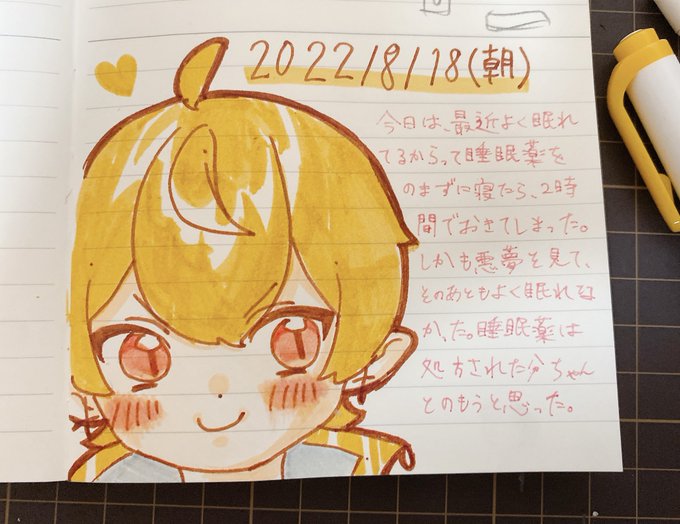 2022/8/18(朝)
今日は、最近よく眠れ
てるからって睡眠薬を
のまずに寝たら、2時
間でおきてしまった。
しかも悪夢を見て、
そのあともよく眠れな
かった。睡眠薬は
処方された分ちゃん
とのもうと思った。